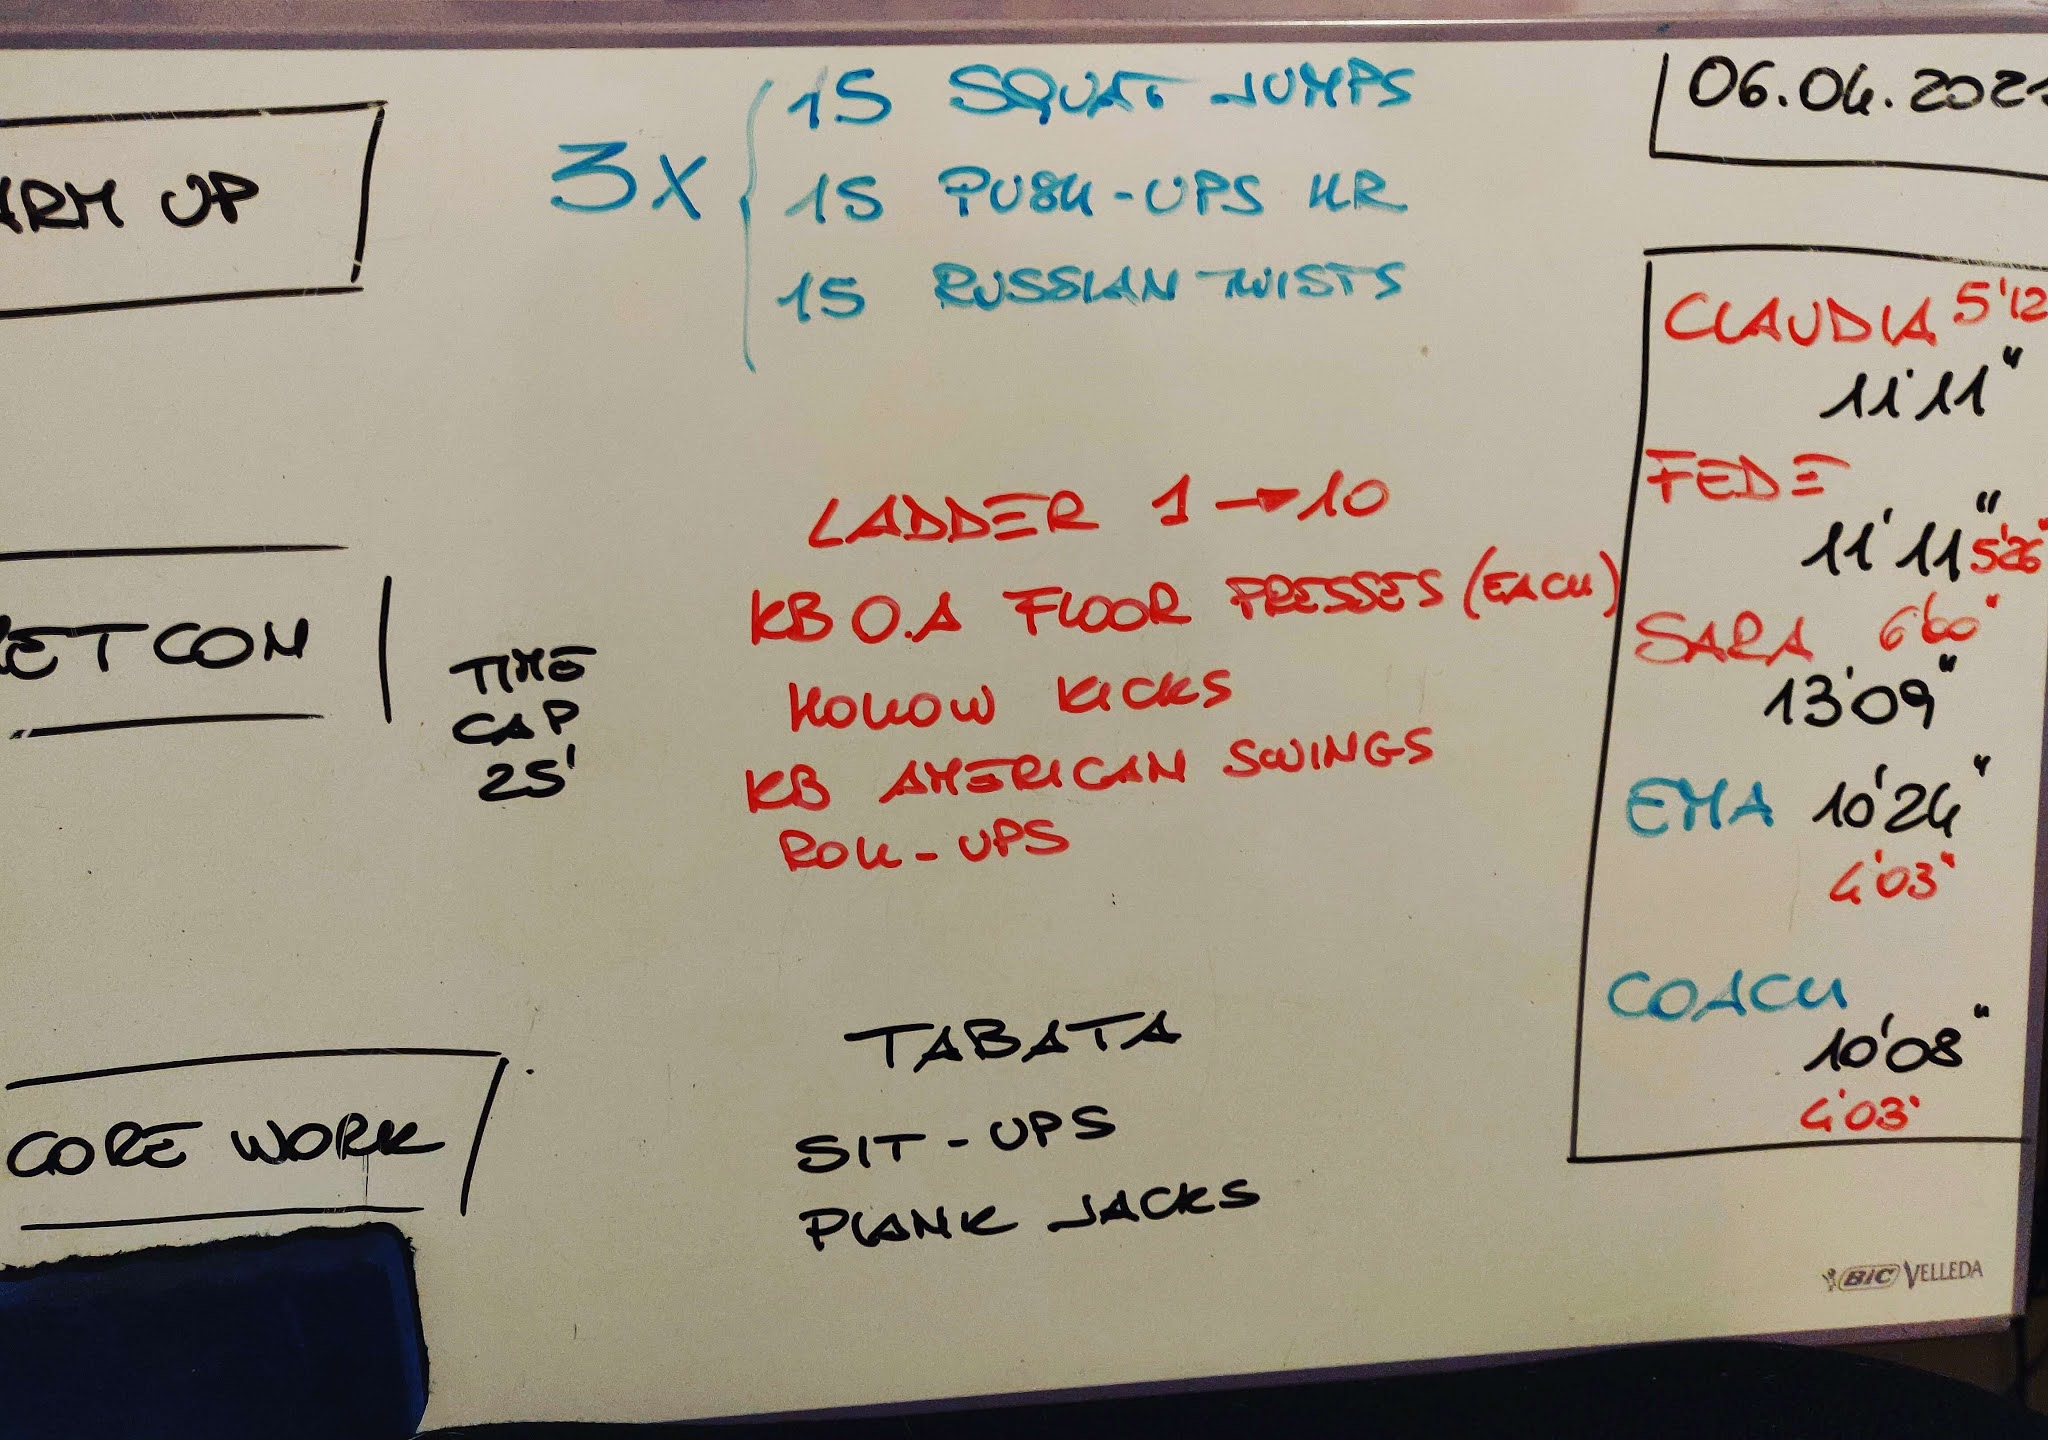 ARM UP
3x
15 SQUAT JUMPS
15 PUSH-UPS HR
15 RUSSIAN TWISTS
06.04.2021
ETCON
TIME
CAP
25'
LADDER 1→10
KB O.A FLOOR PRESSES (EACH)
HOLLOW KICKS
KB AMERICAN SWINGS
ROLL-UPS
CORE WORK
TABATA
SIT-UPS
PLANK JACKS
CLAUDIA 5'12
11'11"
FEDE
11'11" 5'26"
SARA
13'09"
EMA 10'24"
4'03"
COACH
10'08"
4'03"
BIC VELLEDA